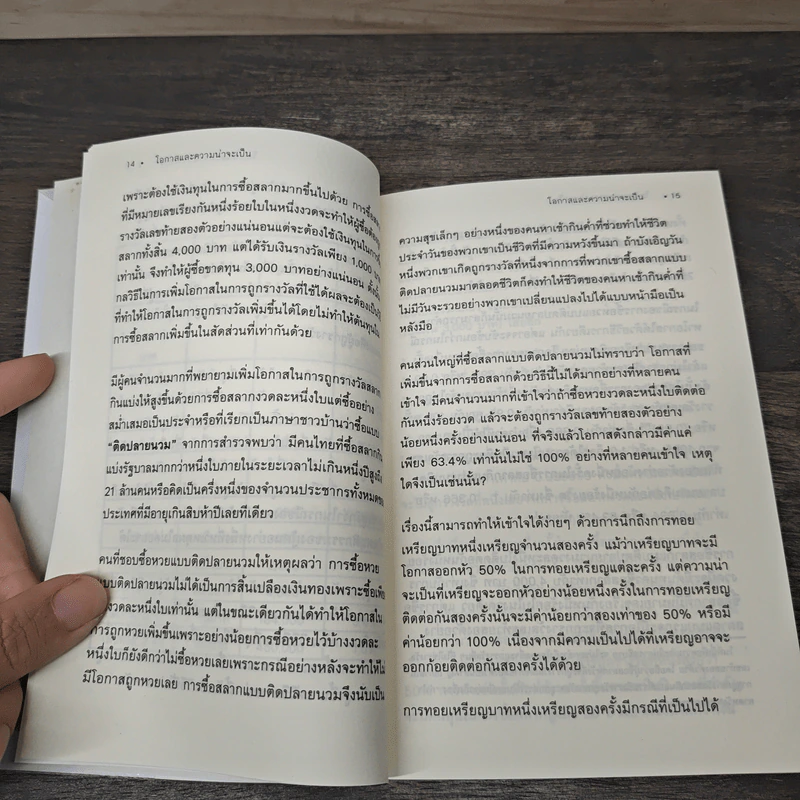 14 • โอกาสและความน่าจะเป็น
เพราะต้องใช้เงินทุนในการซื้อสลากมากขึ้นไปด้วย การซื้อสลาก
ที่มีหมายเลขเรียงกันหนึ่งร้อยใบในหนึ่งงวดจะทำให้ผู้ซื้อต้องถูก
รางวัลเลขท้ายสองตัวอย่างแน่นอนแต่จะต้องใช้เงินทุนในการซื้อ
สลากทั้งสิ้น 4,000 บาท แต่ได้รับเงินรางวัลเพียง 1,000 บาท
เท่านั้น จึงทำให้ผู้ซื้อขาดทุน 3,000 บาทอย่างแน่นอน ดังนั้น
กลวิธีในการเพิ่มโอกาสในการถูกรางวัลที่ใช้ได้ผลจะต้องเป็นวิธี
ที่ทำให้โอกาสในการถูกรางวัลเพิ่มขึ้นได้โดยไม่ทำให้ต้นทุนใน
การซื้อสลากเพิ่มขึ้นในสัดส่วนที่เท่ากันด้วย
มีผู้คนจำนวนมากที่พยายามเพิ่มโอกาสในการถูกรางวัลสลาก
กินแบ่งให้สูงขึ้นด้วยการซื้อสลากงวดละหนึ่งใบแต่ซื้ออย่าง
สม่ำเสมอเป็นประจำหรือที่เรียกเป็นภาษาชาวบ้านว่าซื้อแบบ
“ติดปลายนวม” จากการสำรวจพบว่า มีคนไทยที่ซื้อสลากกิน
แบ่งรัฐบาลมากกว่าหนึ่งใบภายในระยะเวลาไม่เกินหนึ่งปีสูงถึง
21 ล้านคนหรือคิดเป็นครึ่งหนึ่งของจำนวนประชากรทั้งหมดของ
ประเทศที่มีอายุเกินสิบห้าปีเลยทีเดียว
คนที่ชอบซื้อหวยแบบติดปลายนวมให้เหตุผลว่า การซื้อหวย
แบบติดปลายนวมไม่ได้เป็นการสิ้นเปลืองเงินทองเพราะซื้อเพียง
งวดละหนึ่งใบเท่านั้น แต่ในขณะเดียวกันได้ทำให้โอกาสใน
การถูกหวยเพิ่มขึ้นเพราะอย่างน้อยการซื้อหวยไว้บ้างงวดละ
หนึ่งใบก็ยังดีกว่าไม่ซื้อหวยเลยเพราะกรณีอย่างหลังจะทำให้ไม่
มีโอกาสถูกหวยเลย การซื้อสลากแบบติดปลายนวมจึงนับเป็น
โอกาสและความน่าจะเป็น • 15
ความสุขเล็กๆ อย่างหนึ่งของคนหาเช้ากินค่ำที่ช่วยทำให้ชีวิต
ประจำวันของพวกเขาเป็นชีวิตที่มีความหวังขึ้นมา ถ้าบังเอิญวัน
หนึ่งพวกเขาเกิดถูกรางวัลที่หนึ่งจากการที่พวกเขาซื้อสลากแบบ
ติดปลายนวมมาตลอดชีวิตก็คงทำให้ชีวิตของคนหาเช้ากินค่ำที่
ไม่มีวันจะรวยอย่างพวกเขาเปลี่ยนแปลงไปได้แบบหน้ามือเป็น
หลังมือ
คนส่วนใหญ่ที่ซื้อสลากแบบติดปลายนวมไม่ทราบว่า โอกาสที่
เพิ่มขึ้นจากการซื้อสลากด้วยวิธีนี้ไม่ได้มากอย่างที่หลายคน
เข้าใจ มีคนจำนวนมากที่เข้าใจว่าถ้าซื้อหวยงวดละหนึ่งใบติดต่อ
กันหนึ่งร้อยงวด แล้วจะต้องถูกรางวัลเลขท้ายสองตัวอย่าง
น้อยหนึ่งครั้งอย่างแน่นอน ที่จริงแล้วโอกาสดังกล่าวมีค่าแค่
เพียง 63.4% เท่านั้นไม่ใช่ 100% อย่างที่หลายคนเข้าใจ เหตุ
ใดจึงเป็นเช่นนั้น?
เรื่องนี้สามารถทำให้เข้าใจได้ง่ายๆ ด้วยการนึกถึงการทอย
เหรียญบาทหนึ่งเหรียญจำนวนสองครั้ง แม้ว่าเหรียญบาทจะมี
โอกาสออกหัว 50% ในการทอยเหรียญแต่ละครั้ง แต่ความน่า
จะเป็นที่เหรียญจะออกหัวอย่างน้อยหนึ่งครั้งในการทอยเหรียญ
ติดต่อกันสองครั้งนั้นจะมีค่าน้อยกว่าสองเท่าของ 50% หรือมี
ค่าน้อยกว่า 100% เนื่องจากมีความเป็นไปได้ที่เหรียญอาจจะ
ออกก้อยติดต่อกันสองครั้งได้ด้วย
การทอยเหรียญบาทหนึ่งเหรียญสองครั้งมีกรณีที่เป็นไปได้